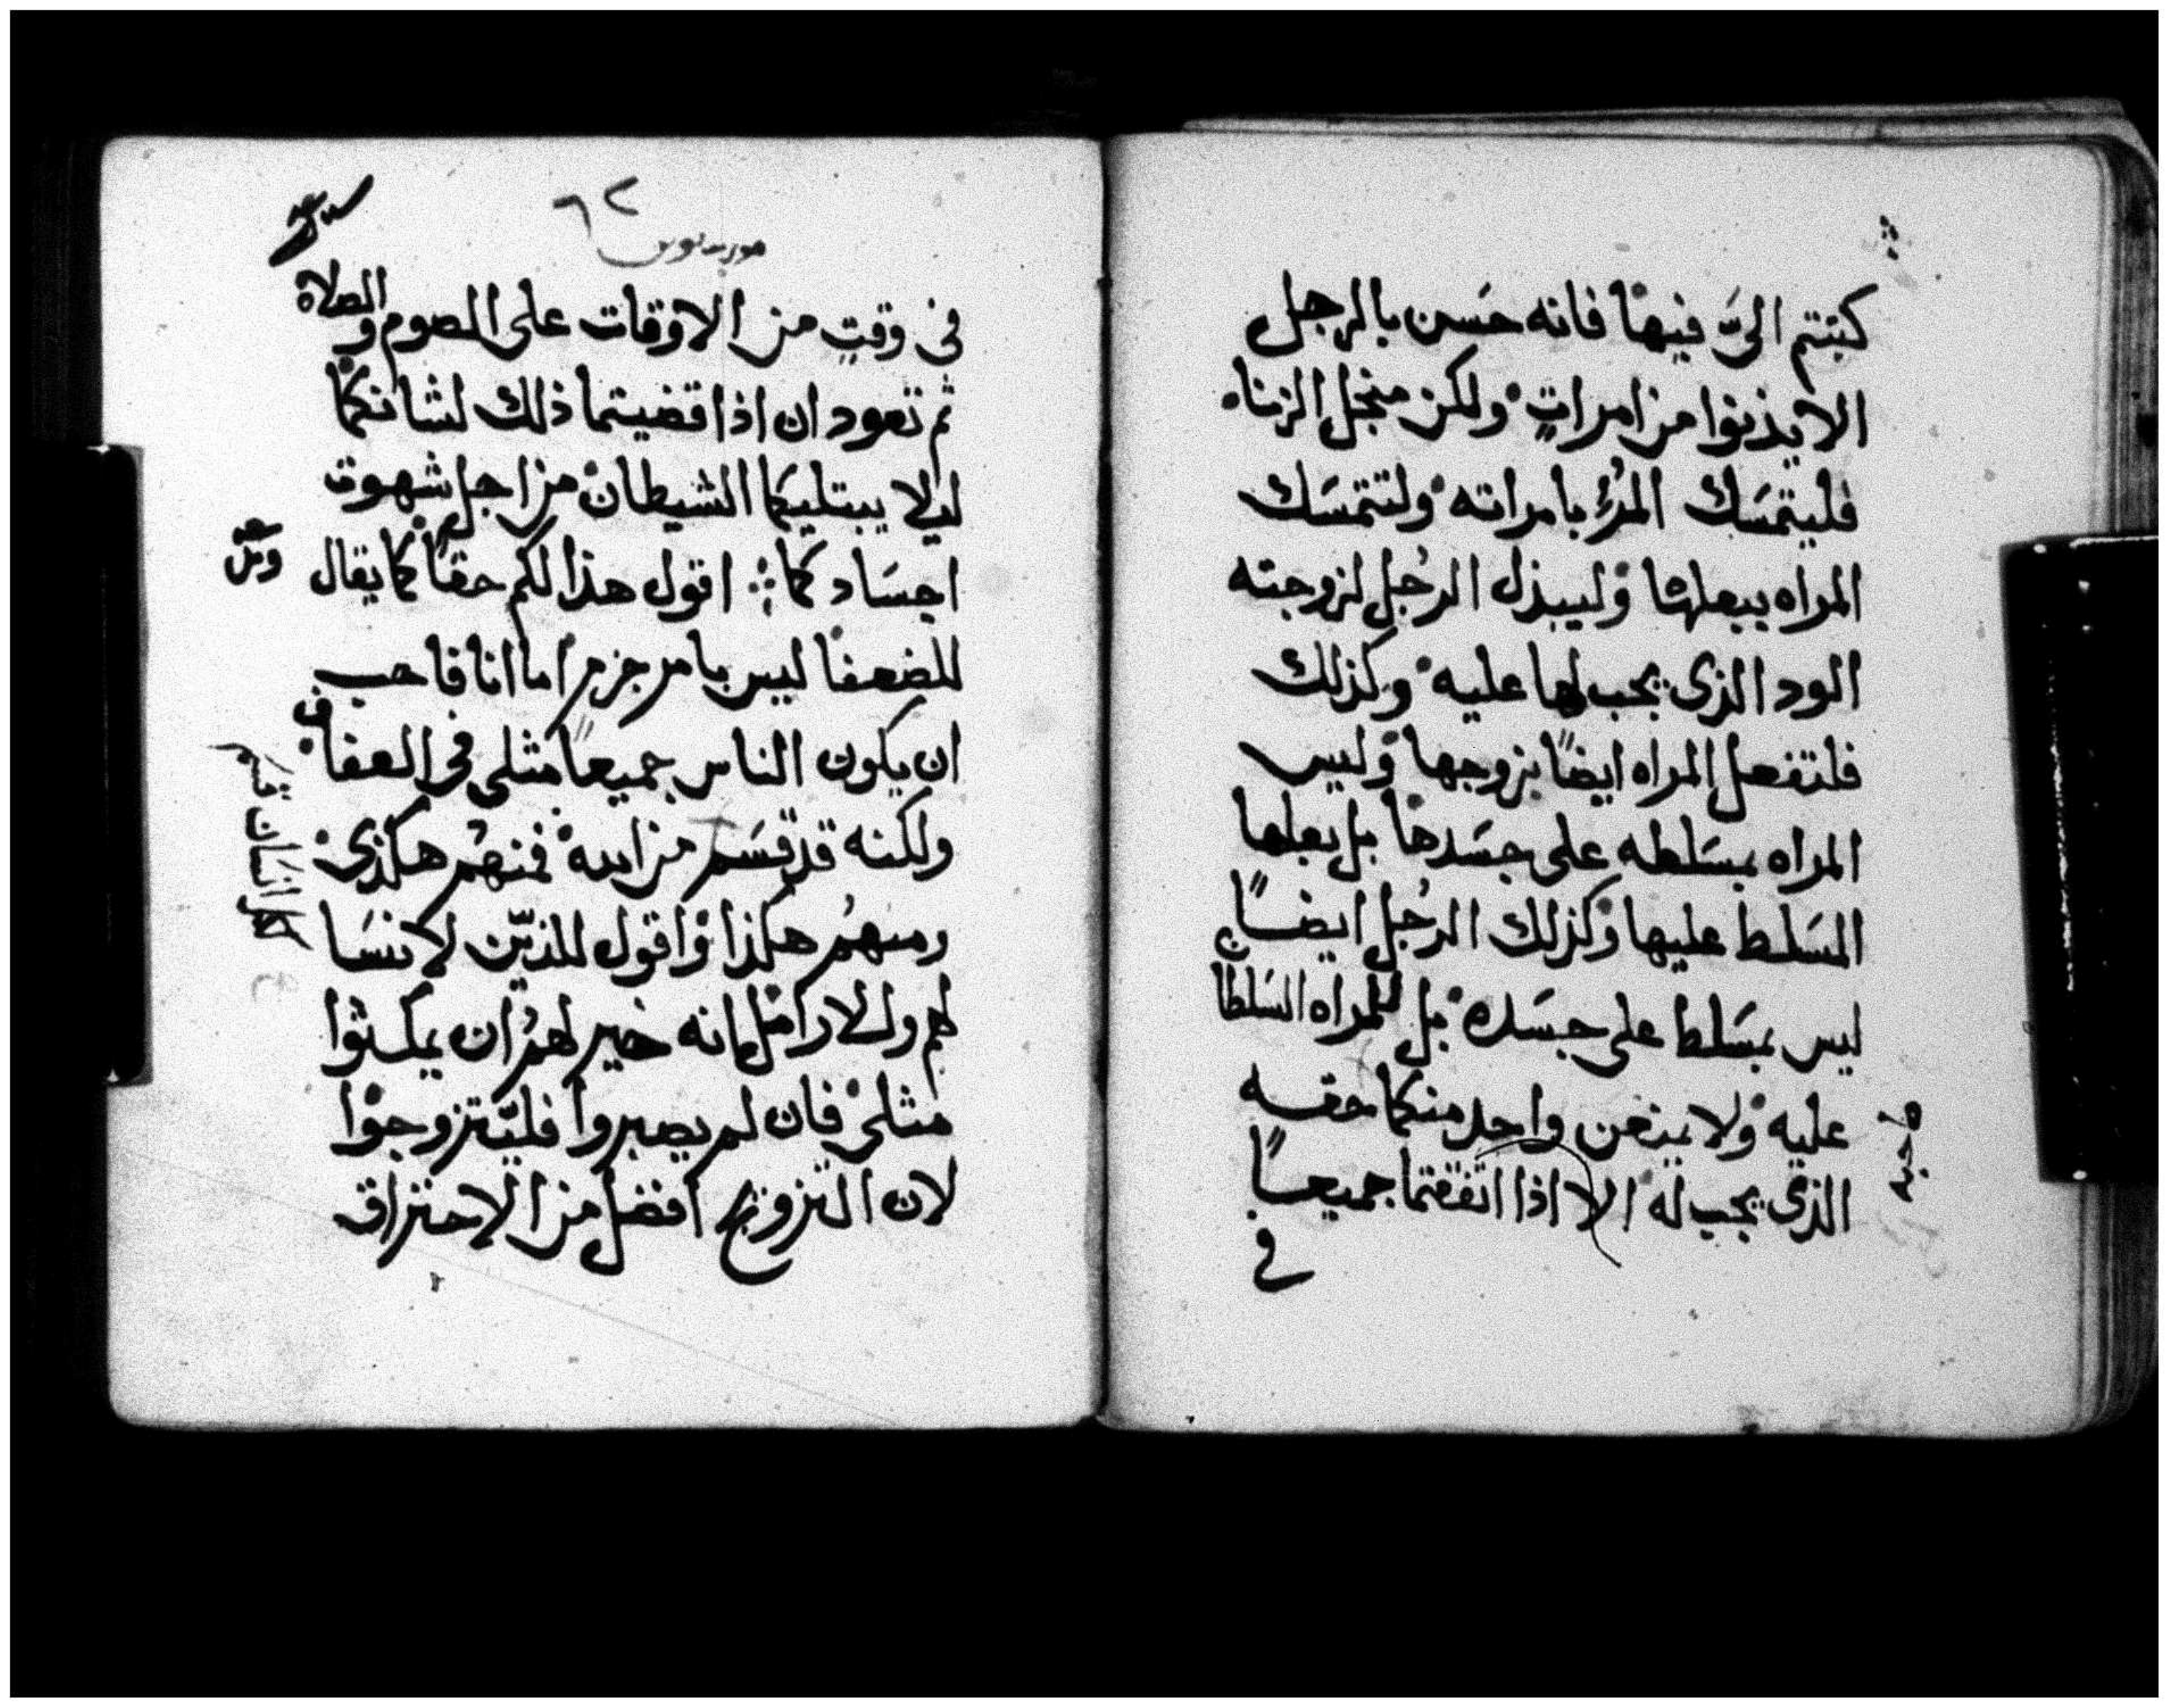 كتبتم اليَّ فيها فانه حَسَن بالرجل
الا يدنوا من امراتٍ ولكن منجل الزناه
فليتمسَك المرُء بامراته ولتتمسَك
المراه ببعلها وليبذل الرجُل لزوجته
الود الذى يجب لها عليه وكذلك
فلتفعل المراه ايضًا بزوجها وليس
المراه بمسَلطه على جسَدها بل بعلها
المسَلط عليها وكذلك الرجُل ايضًا
ليس بمسَلط على جسَده بل للمراه السَلطا
عليه ولا يمنعن واحد منكما حقه
صاحبه
الذى يجب له الا اذا اتفقتما جميعًا
في
٦٢
فى وقتٍ من الاوقات على الصوم والصلاة
ثم تعود ان اذا قضيتما ذلك لشانكما
ليلا يبتليكما الشيطان من اجل شهوة
اجسَادكما ؞ اقول هذا لكم حقًا كما يقال
للضعفا ليس بامر جزم اما انا فاحب
ان يكون الناس جميعًا مثلى فى العفاف
ولكنه قد قسَم من الله فمنهُم هكذى
ومنهُم هكذا واقول للذين لا نسَا
لهم وللارامل انه خير لهمُ ان يمكثوا
مثلى فان لم يصبروا فليتزوجوا
لان التزويج افضل من الاحتراق
كل انسَان قسَم